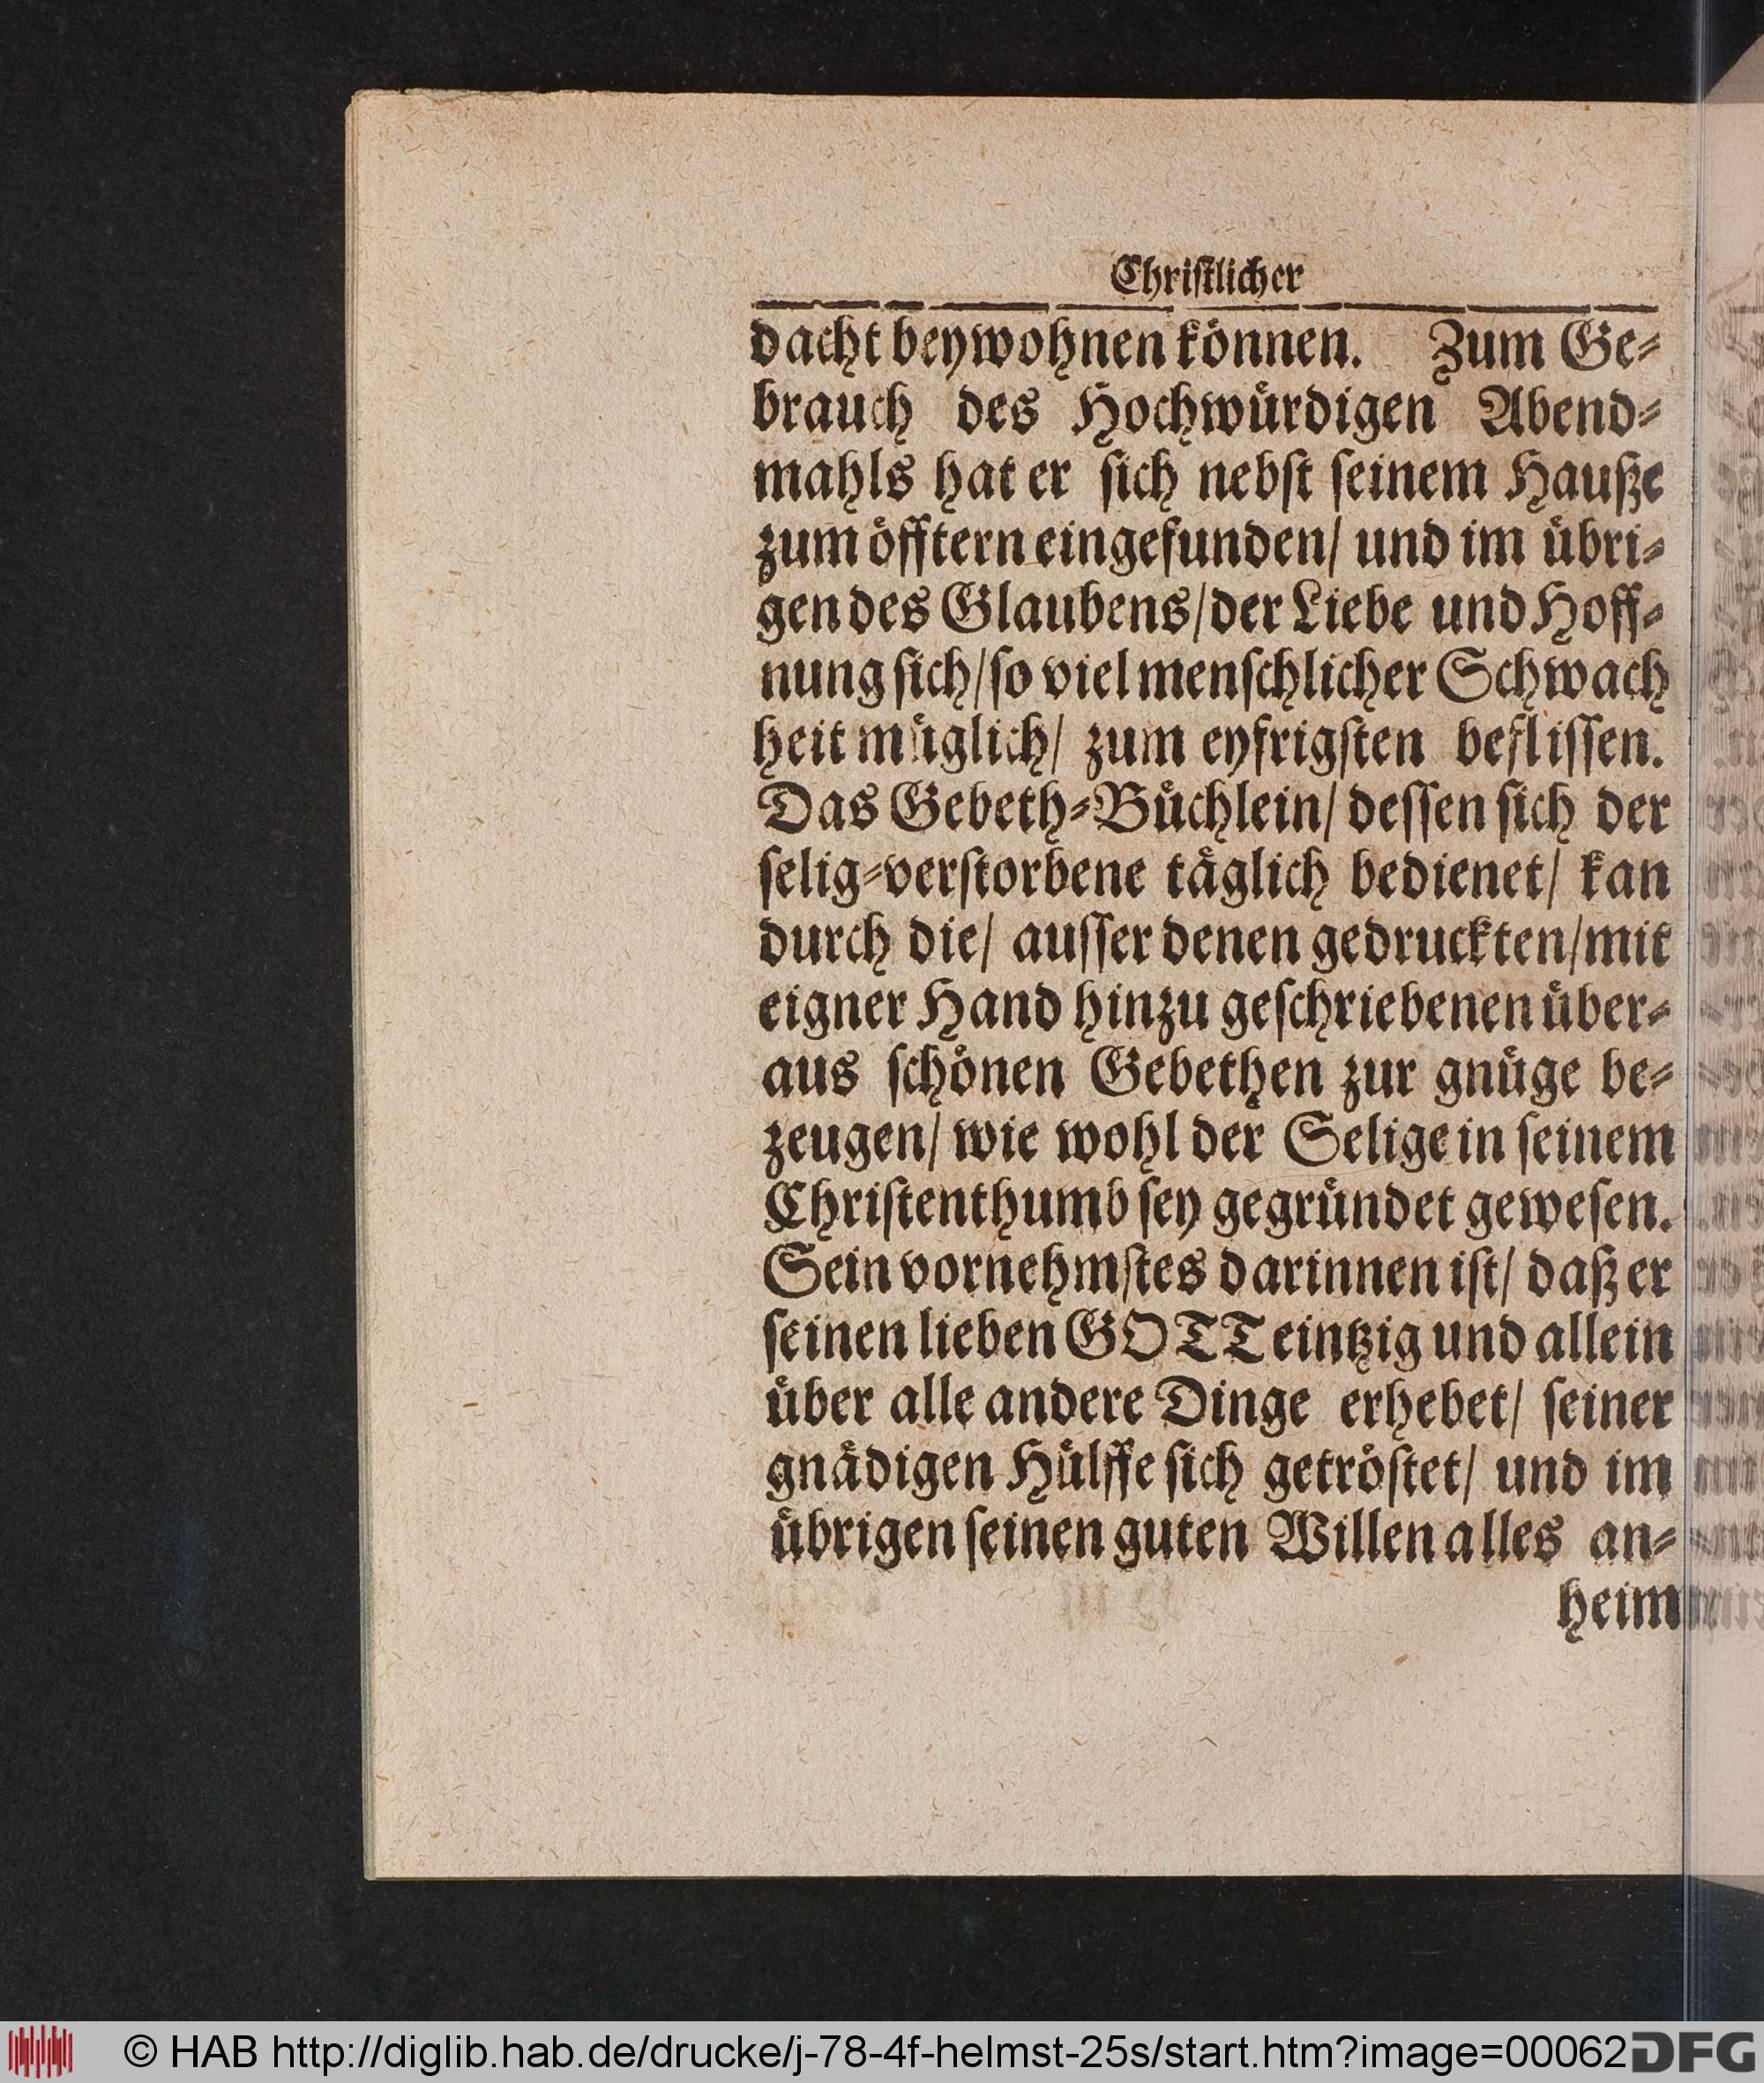 Chriſtlicher
dacht beywohnen koͤnnen. Zum Ge⸗
brauch des Hochwuͤrdigen Abend⸗
mahls hat er ſich nebſt ſeinem Hauße
zum oͤfftern eingefunden/ und im uͤbri⸗
gen des Glaubens/ der Liebe und Hoff⸗
nung ſich/ ſo viel menſchlicher Schwach
heit muͤglich/ zum eyfrigſten befliſſen.
Das Gebeth⸗Buͤchlein/ deſſen ſich der
ſelig⸗verſtorbene taͤglich bedienet/ kan
durch die/ auſſer denen gedruckten/ mit
eigner Hand hinzu geſchriebenen uͤber⸗
aus ſchoͤnen Gebethen zur gnuͤge be⸗
zeugen/ wie wohl der Selige in ſeinem
Chriſtenthumb ſey gegruͤndet geweſen.
Sein vornehmſtes darinnen iſt/ daß er
ſeinen lieben GOTT eintzig und allein
uͤber alle andere Dinge erhebet/ ſeiner
gnaͤdigen Huͤlffe ſich getroͤſtet/ und im
uͤbrigen ſeinen guten Willen alles an⸗
heim
© HAB http://diglib.hab.de/drucke/j-78-4f-helmst-25s/start.htm?image=00062 DFG